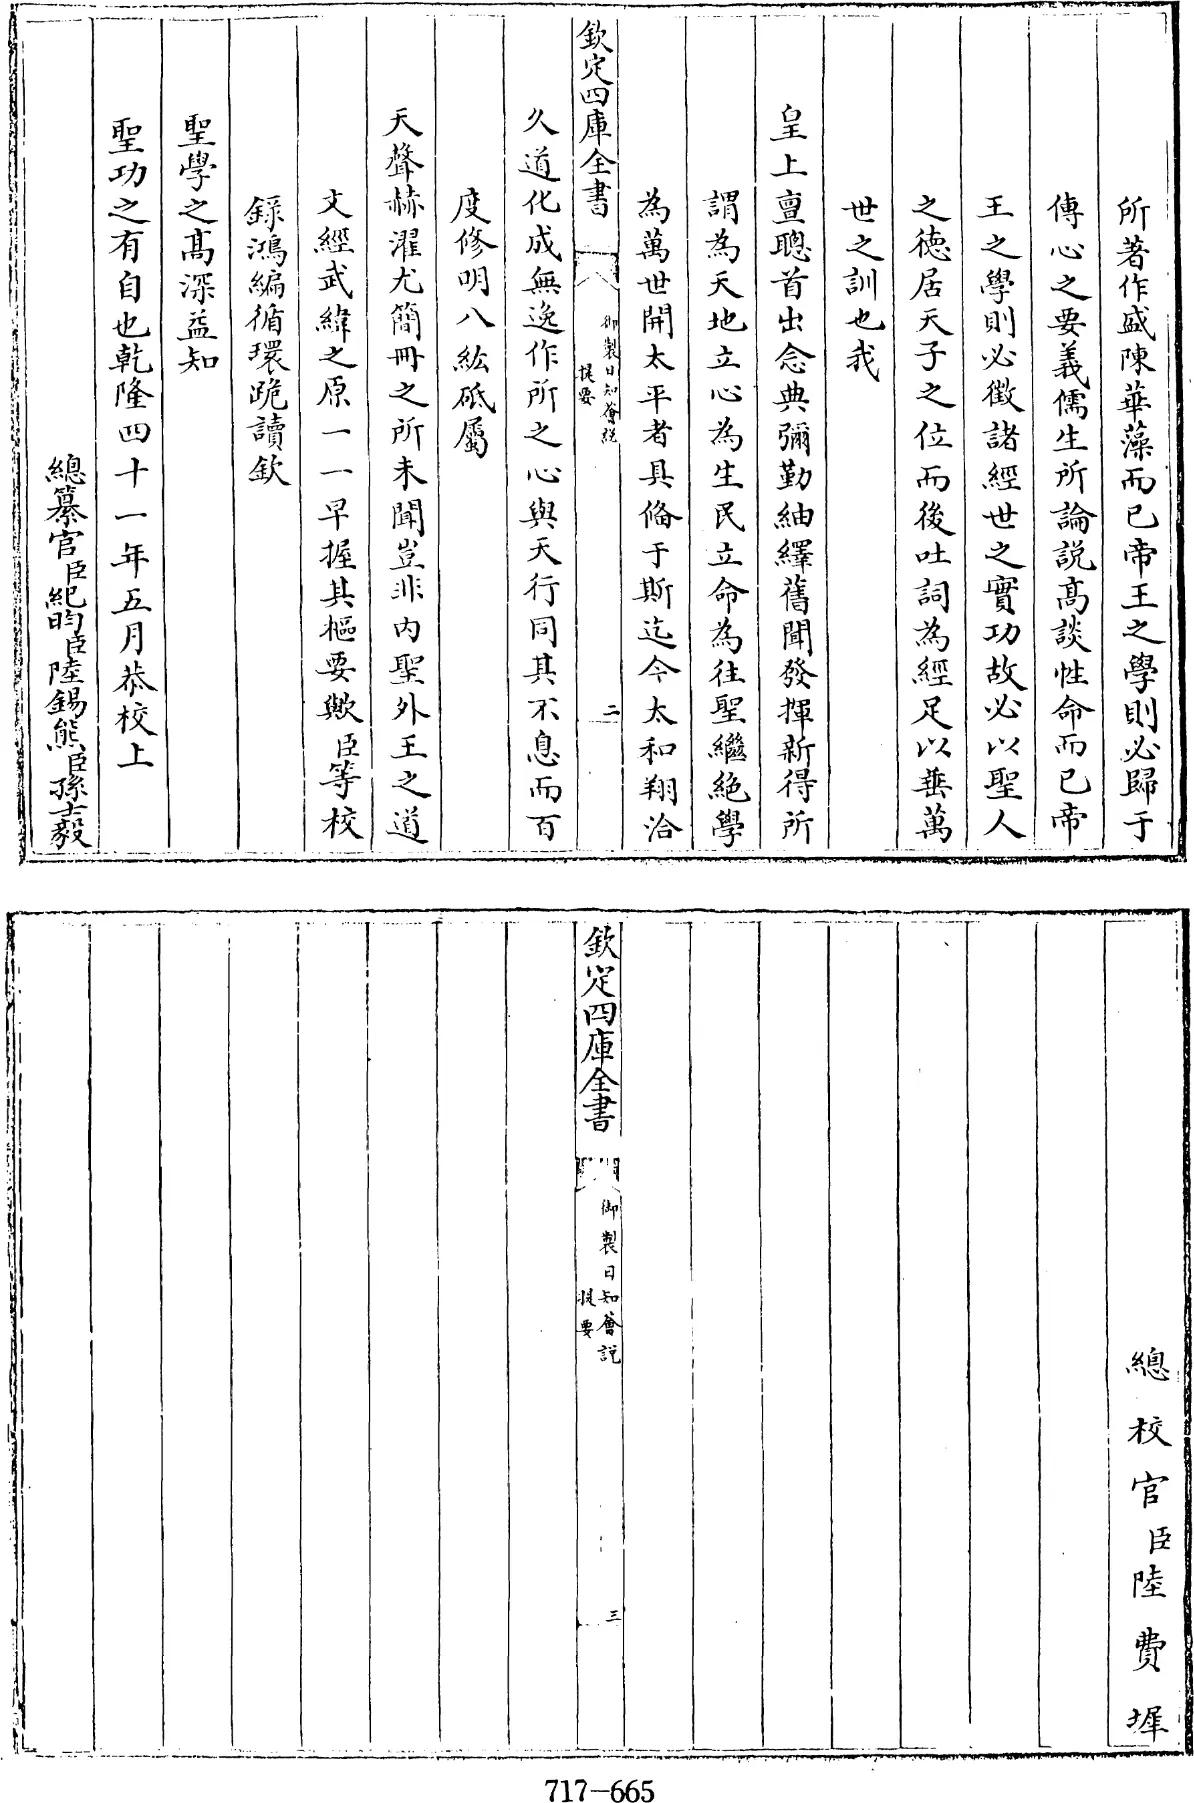 所著作盛陳華藻而已帝王之學則必歸于
傳心之要義儒生所論説髙談性命而已帝
王之學則必徵諸經世之實功故必以聖人
之徳居天子之位而後吐詞為經足以垂萬
世之訓也我
皇上亶聰首出念典彌勤紬繹舊聞發揮新得所
謂為天地立心為生民立命為往聖繼絶學
為萬世開太平者具偹于斯迄今太和翔洽
欽定四庫全書
御製日知薈説
提要
二
久道化成無逸作所之心與天行同其不息而百
度修明八紘砥屬
天聲赫濯尤簡冊之所未聞豈非内聖外王之道
文經武緯之原一一早握其樞要歟臣等校
録鴻編循環跪讀欽
聖學之髙深益知
聖功之有自也乾隆四十一年五月恭校上
總纂官臣紀昀臣陸錫熊臣孫士毅
總校官臣陸費墀
欽定四庫全書
御製日知薈説
提要
三
717-665